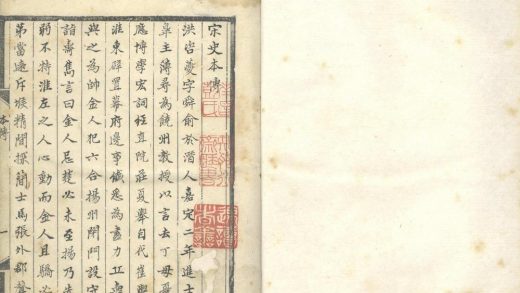 宋史本傳
洪咨夔字舜俞於潛人嘉定二年進士
皋主簿尋為饒州教授以言去丁母憂
應博學宏詞科直院莊夏舉自代崔與
淮東辟置幕府邊事纖悉為盡力丘
與之為帥金人犯六合揚州閉門設守
詣壽雋言曰金人忌楚必未至揚乃先
弱不特淮左之人心動而金人且驕必
第當遠斥堠精間探簡士馬張外郡聲
本傳
一